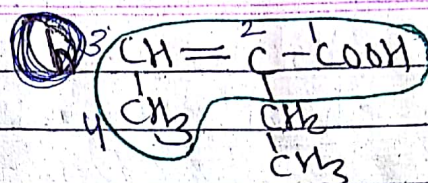 3 CH = 2 C - 1 COOH
4 CH3 CH2
CH3